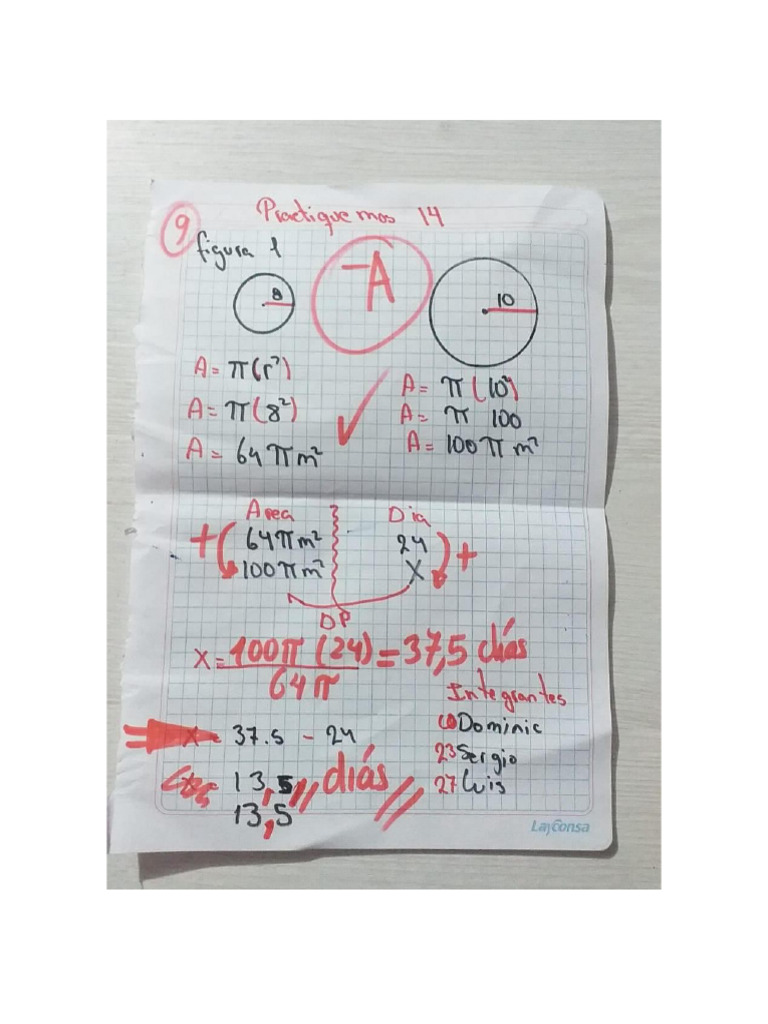 Practiquemos 14
9
figura 1
-A
8
10
A = π(r²)
A = π(8²)
A = 64πm²
A = π(10²)
A = π 100
A = 100πm²
Area
Dia
+ 64πm²
24 +
100πm²
X
DP
X = 100π(24) = 37,5 días
64π
Integrantes
X = 37.5 - 24
Dominic
23 Sergio
13,5 // diás //
27 Luis
13,5
Layconsa